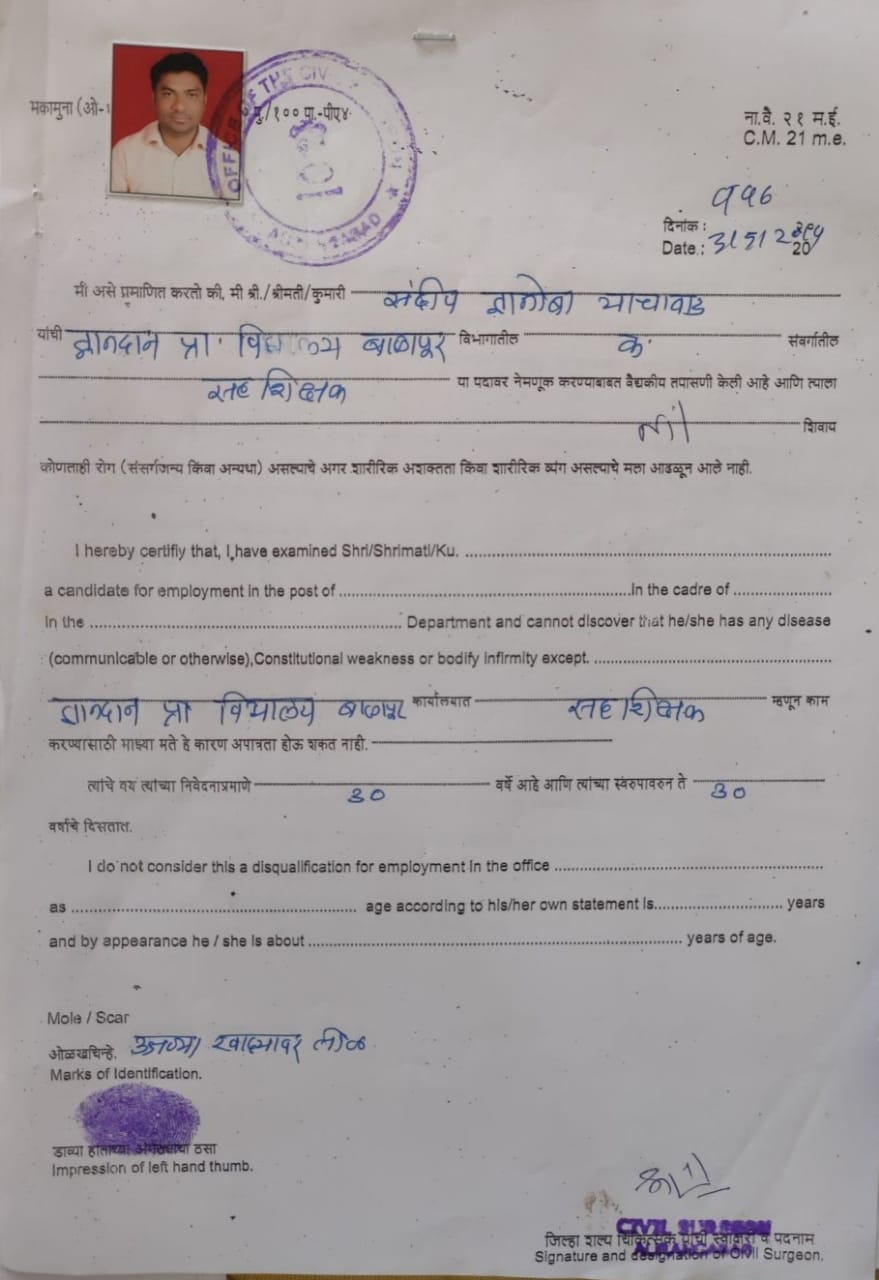 मकामुना (ओ-
मु./१०० पा.-पीए४
OFFICE OF THE CIV
ना.वै. २१ म.ई.
C.M. 21 m.e.
दिनांक :
Date.: 20
मी असे प्रमाणित करतो की, मी श्री./श्रीमती/कुमारी संदीप ज्ञानोबा माचावाड
यांची ज्ञानदान प्रा. विद्यालय बाळापूर विभागातील क. संवर्गातील
सह शिक्षक या पदावर नेमणूक करण्याबाबत वैद्यकीय तपासणी केली आहे आणि त्याला
nil शिवाय
कोणताही रोग (संसर्गजन्य किंवा अन्यथा) असल्याचे अगर शारीरिक अशक्तता किंवा शारीरिक व्यंग असल्याचे मला आढळून आले नाही.
I hereby certifiy that, I have examined Shri/Shrimati/Ku.
a candidate for employment in the post of In the cadre of
In the Department and cannot discover that he/she has any disease
(communicable or otherwise),Constitutional weakness or bodify infirmity except.
ज्ञानदान प्रा विद्यालय बाळापूर कार्यालयात सह शिक्षक म्हणून काम
करण्यासाठी माझ्या मते हे कारण अपात्रता होऊ शकत नाही.
त्यांचे वय त्यांच्या निवेदनाप्रमाणे 30 वर्षे आहे आणि त्यांच्या स्वरुपावरुन ते 30
वर्षाचे दिसतात.
I do not consider this a disqualification for employment In the office
as age according to his/her own statement Is. years
and by appearance he / she Is about years of age.
Mole / Scar
ओळखचिन्हे. उजव्या खांद्यावर तीळ
Marks of Identification.
डाव्या हाताच्या अंगठ्याचा ठसा
Impression of left hand thumb.
CIVIL SURGEON
जिल्हा शल्य चिकित्सक यांची स्वाक्षरी व पदनाम
Signature and designation of Civil Surgeon.